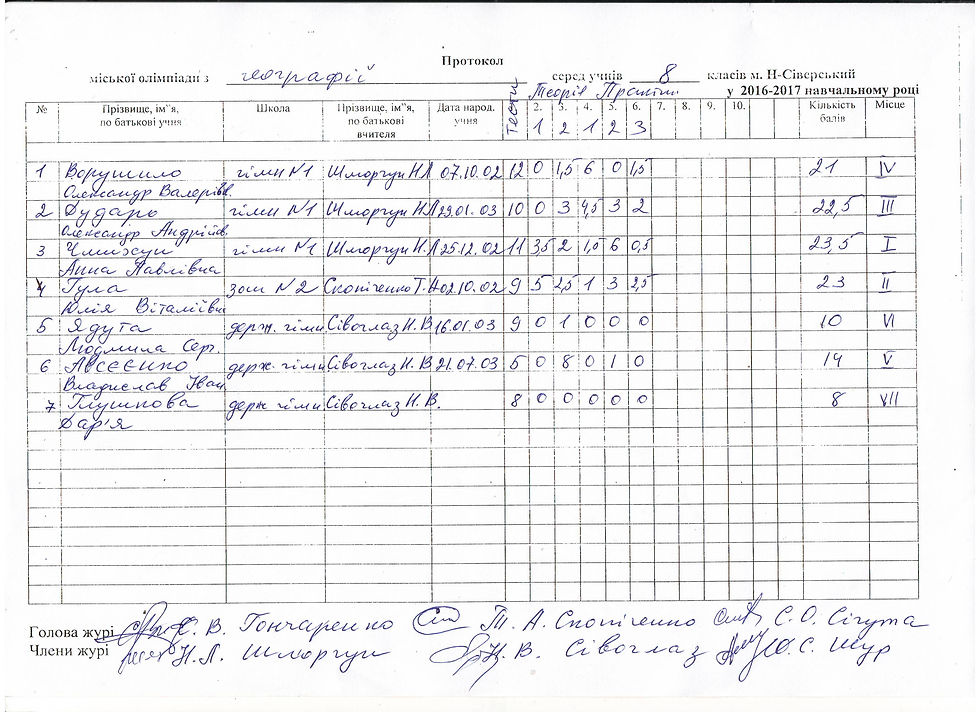 Протокол
міської олімпіади з географії серед учнів 8 класів м. Н-Сіверський
Тести Теорія Практич у 2016-2017 навчальному році
№ Прізвище, ім"я, по батькові учня Школа Прізвище, ім"я, по батькові вчителя Дата народ. учня 2. 3. 4. 5. 6. 7. 8. 9. 10. Кількість балів Місце
1 2 1 2 3
1 Ворушило гімн №1 Шморгун Н.Л 07.10.02 12 0 1,5 6 0 1,5 21 IV
Олександр Валерійов.
2 Дударо гімн №1 Шморгун Н.Л 29.01.03 10 0 3 4,5 3 2 22,5 III
Олександр Андрійов.
3 гімн №1 Шморгун Н.Л 25.12.02 11 3,5 2 6 0,5 23,5 I
Анна Павлівна
4 Гула зош №2 Скопіченко Т.А 02.10.02 9 5 2,5 1 3 2,5 23 II
Юлія Віталіївна
5 Ядута держ. гімн Сівоглаз Н.В 16.01.03 9 0 1 0 0 0 10 VI
Людмила Серг.
6 Авсєєнко держ. гімн Сівоглаз Н.В 21.07.03 5 0 8 0 1 0 14 V
Владислав Іван
7 Глушкова держ гімн Сівоглаз Н.В. 8 0 0 0 0 0 8 VII
Дар'я
Голова журі Є.В. Гончаренко Т.А. Скопіченко С.О. Сігута
Члени журі Н.Л. Шморгун Н.В. Сівоглаз Ю.С. Шур